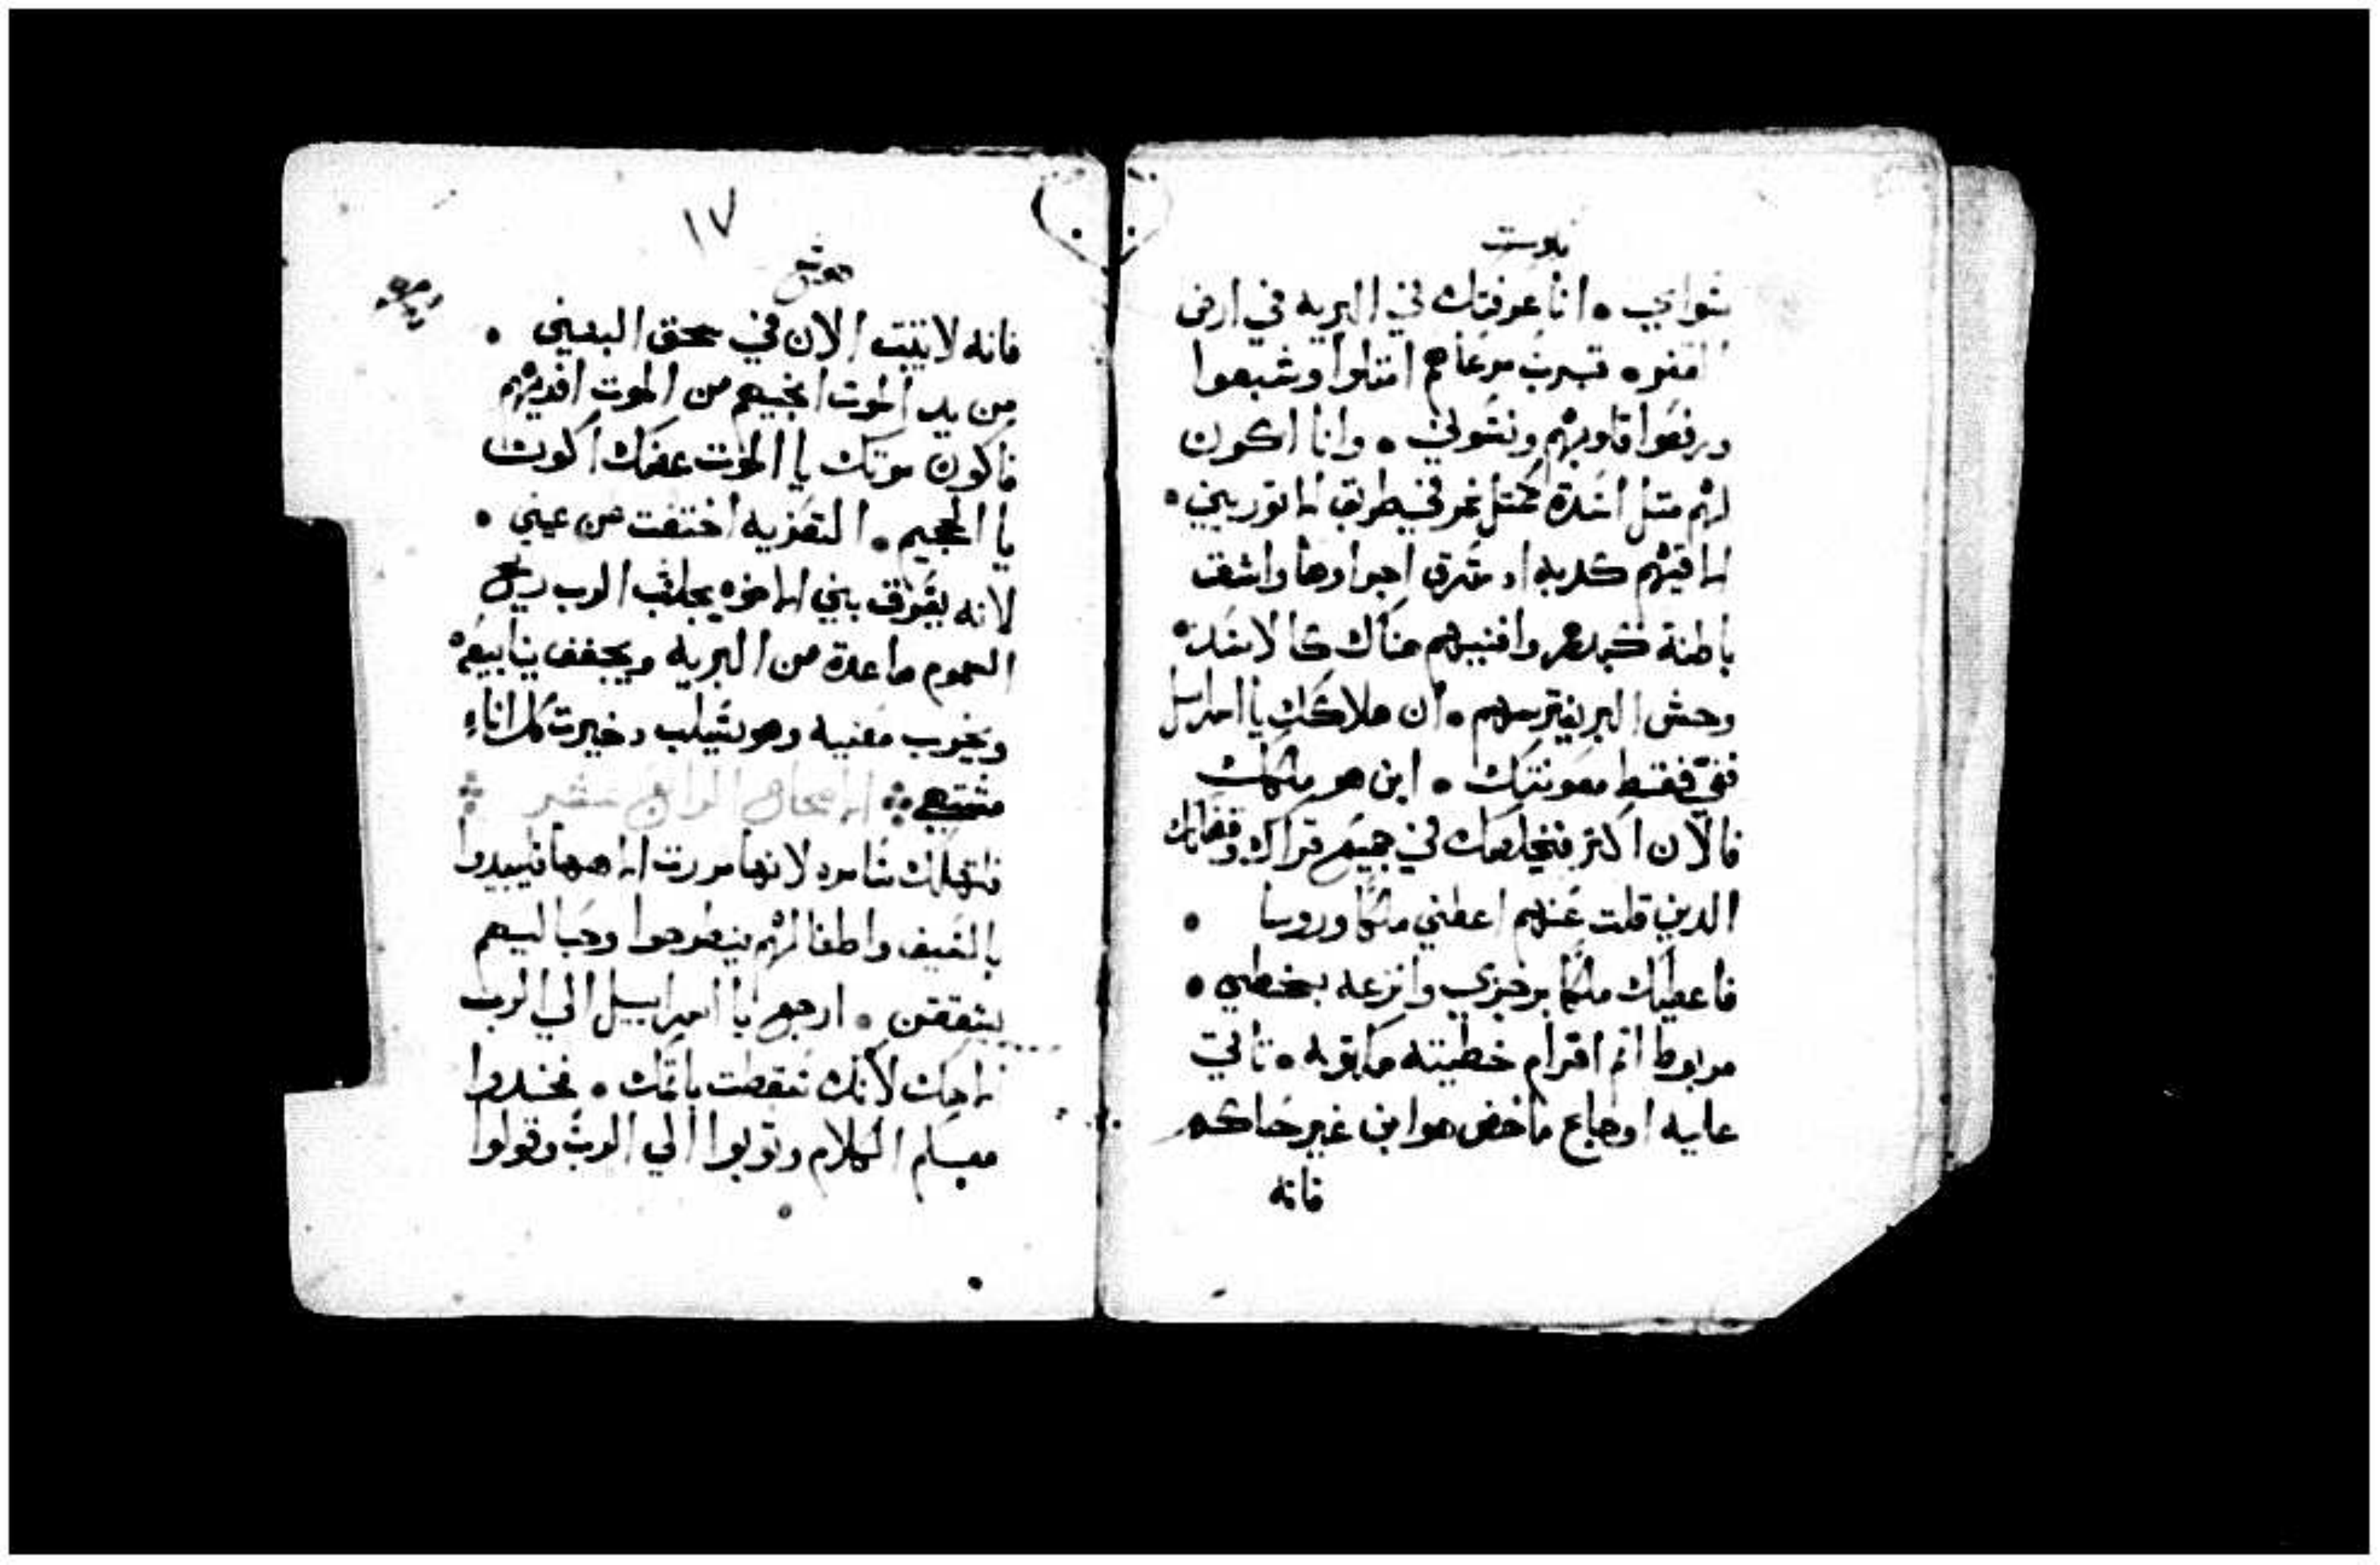 نبوت
سوايي • انا عرفتك في البريه في ارض
القفره • قرب مرعاهم امتلوا وشبعوا
ورفعوا قلوبهم ونسوني • وانا اكون
لهم متل اسدة كمتل نمر في طريق الاتوريين •
الاقيهم كدبه اجراوها واشق
باطنة كبدهم وافنيهم هناك كالاسدة
وحش البر يفترسهم • ان هلاكك يا اسراييل
ففيّ فقط معونتك • اين هو ملكك
فالان اكتر فيخلصك في جميع قراك وقضاتك
الدين قلت عنهم اعطني ملكًا وروسا •
فاعطيك ملكًا برجزي وانزعه بسخطي •
مربوط اتم افرام خطيته مكتوبه • تاتي
عليه اوجاع ماخض هو ابن غير حاكم
فانه
١٧
هوشع
فانه لا يتبت الان في سحق البنين •
من يد الموت انجيهم من الموت افديهم
فاكون موتك يا الموت عضك اكون
يا الجحيم • التعزيه اختفت من عيني •
لانه يفرق بين الاخوه يجلب الرب ريح
السموم صاعدة من البريه ويجفف ينابيعه
ويخرب معنيه وهو يسلب دخيرت كل اناء
مشتهي الاصحاح الرابع عشر
فلتهلك سامره لانها مررت الاهها فيبيدوا
بالسيف واطفالهم ينطرحوا وحباليهم
يشققن • ارجع يا اسراييل الي الرب
الاهك لانك سقطت باتمك • فخدوا
معكم الكلام وتوبوا الي الرب وقولوا